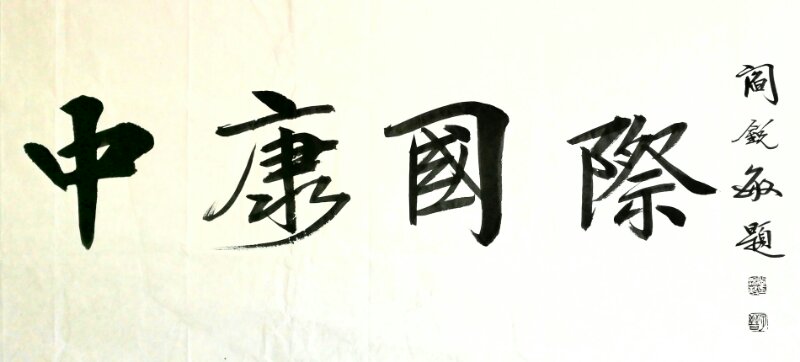 中康國際
閻銳敏題